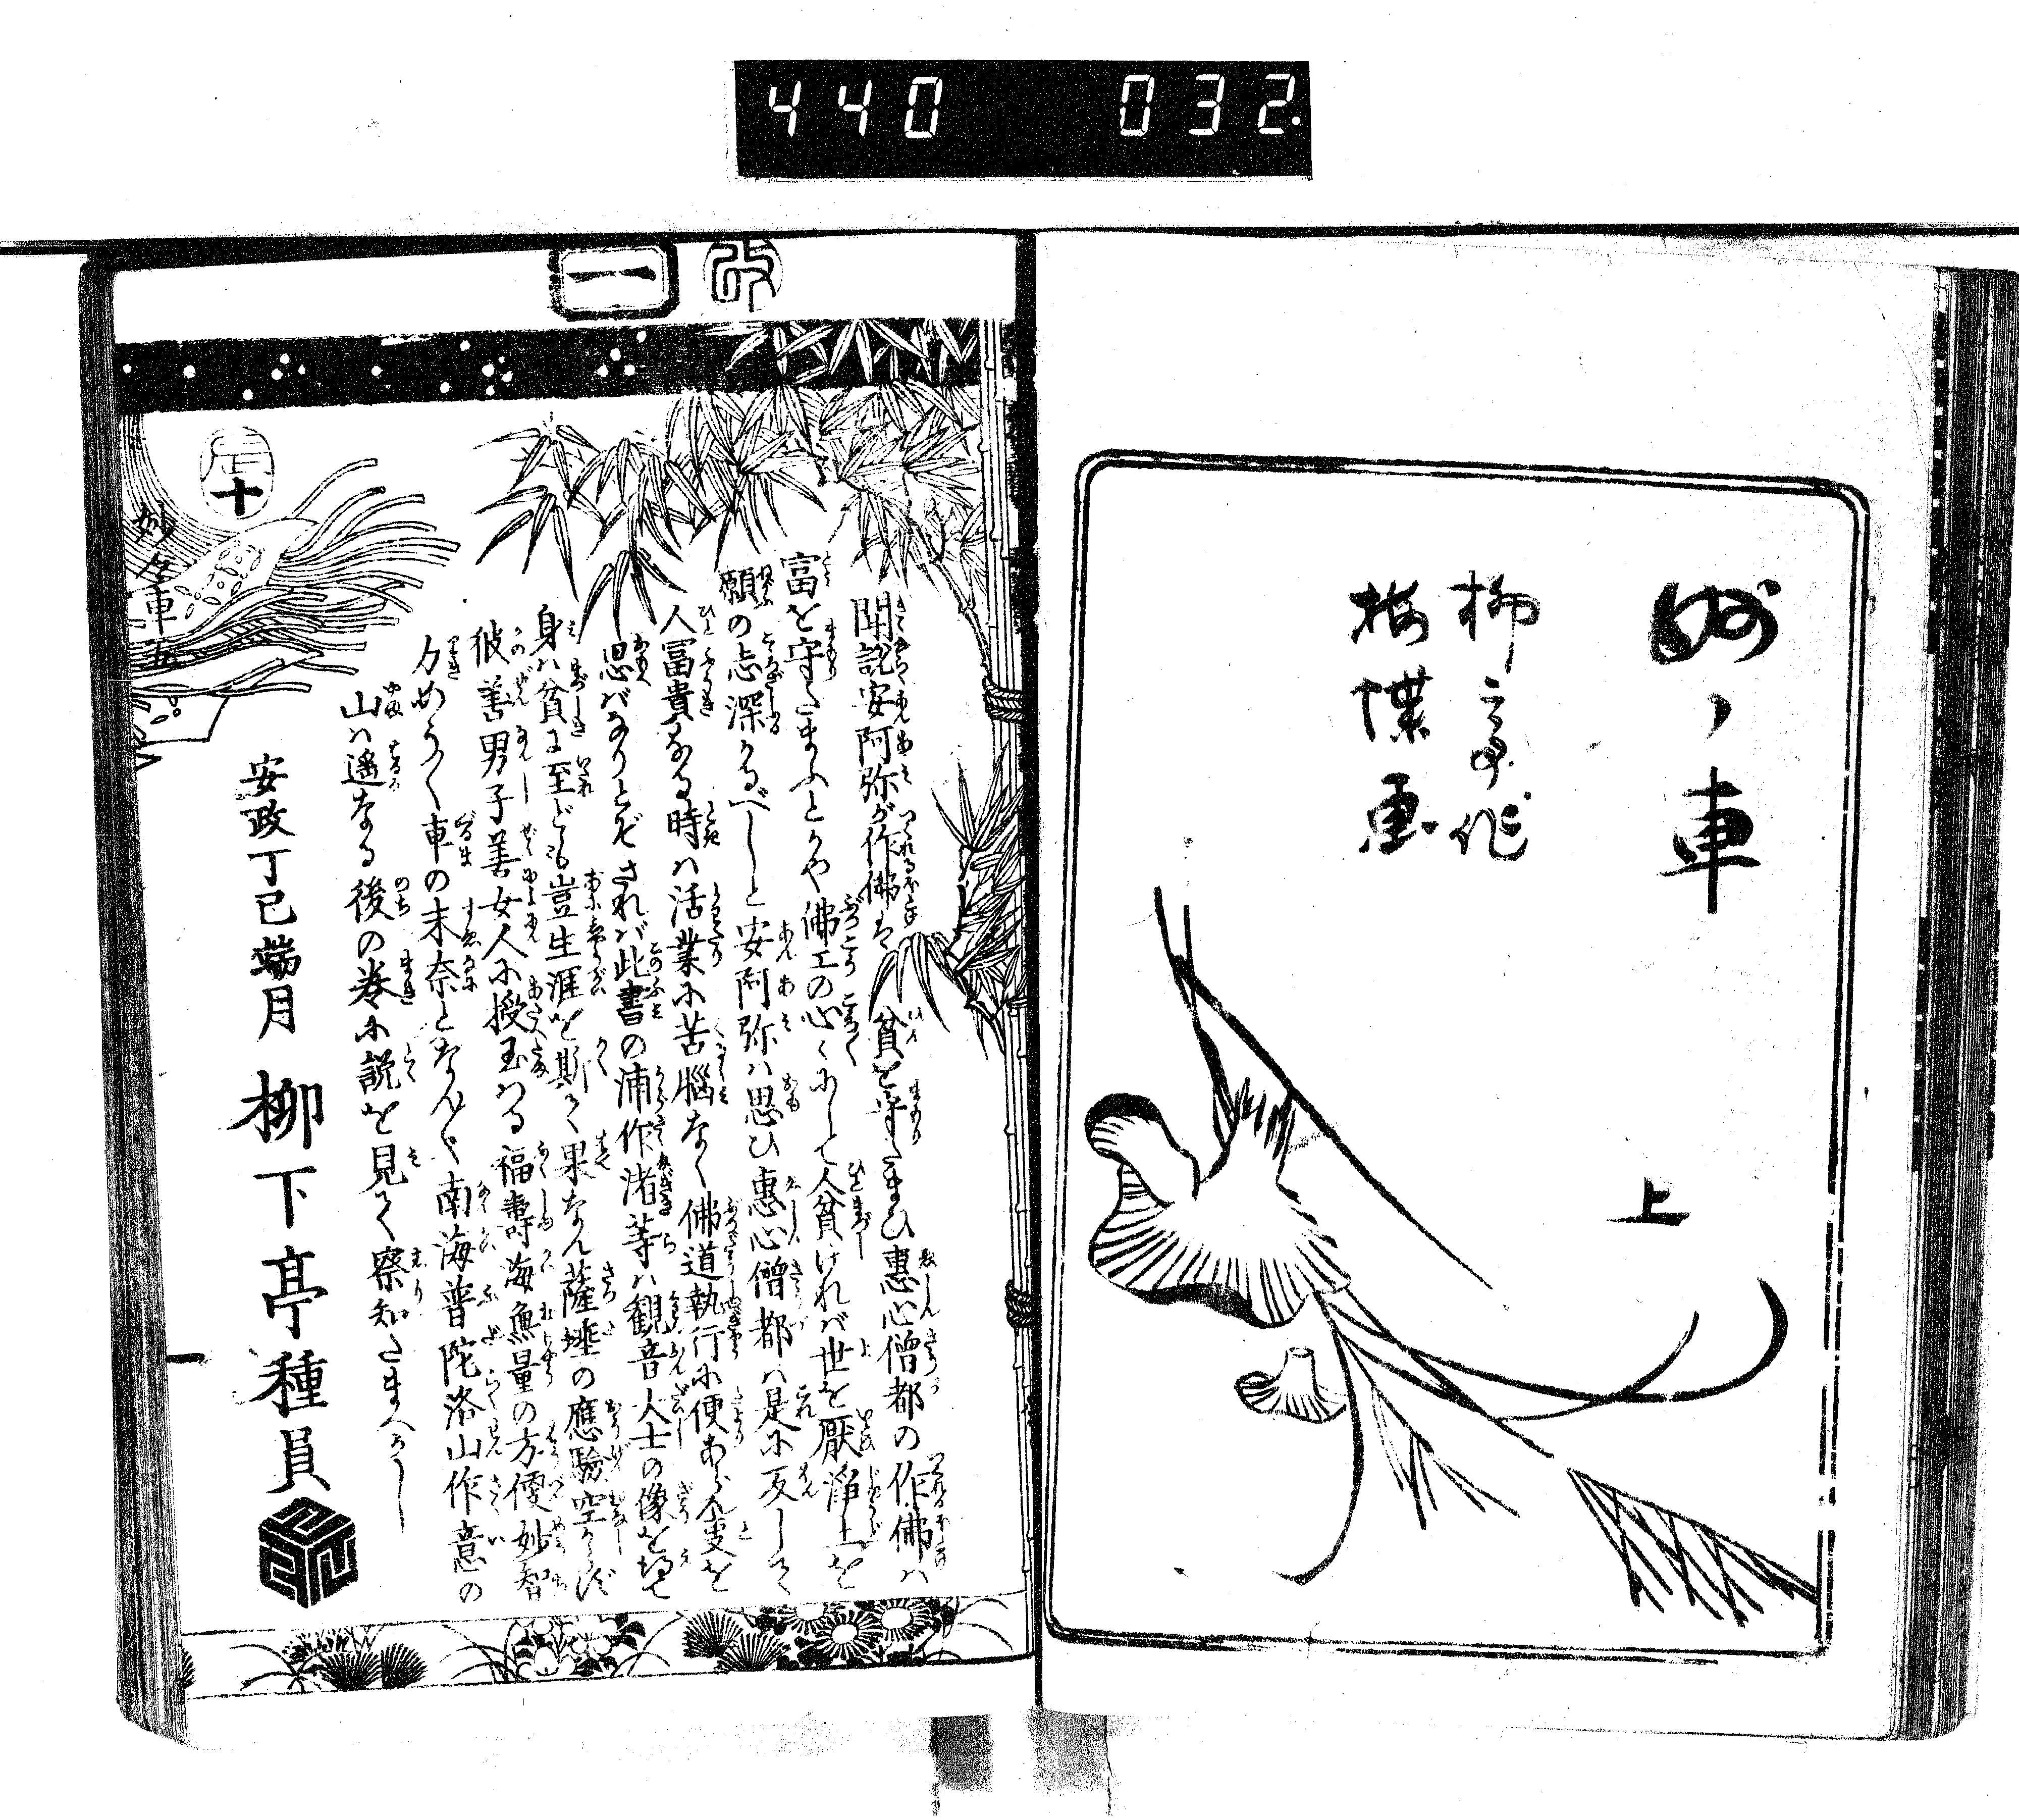 440 032
妙々車
柳亭作
梅蝶画
上
改
一
聞説安阿弥が作佛は貧を守たまひ惠心僧都の作佛ハ
富を守たまふとかや佛工の心〻にして人貧けれバ世を厭淨土を
願の志深かるべしと安阿弥ハ思ひ惠心僧都ハ是に反して
人冨貴なる時ハ活業に苦惱なく佛道執行に便あらん事を
思バなりとぞされバ此書の浦作渚等ハ観音人士の像を得て
身ハ貧に至ども豈生涯を斯て果なん薩埵の應驗空からず
彼善男子善女人に授玉はる福壽海無量の方便妙智
力めうく車の末奈となんば南海普陀洛山作意の
山ハ遙なる後の巻に説を見て察知たまへかし
安政丁巳端月
柳下亭種員
十
妙々車五
一